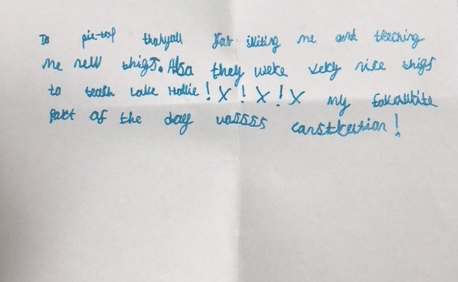 To pie-top thankyou for inviting me and teaching
me new thigs. Also they weke very nice thigs
to teach Lake Hollie! X ! X ! X my favarite
part of the day wassss